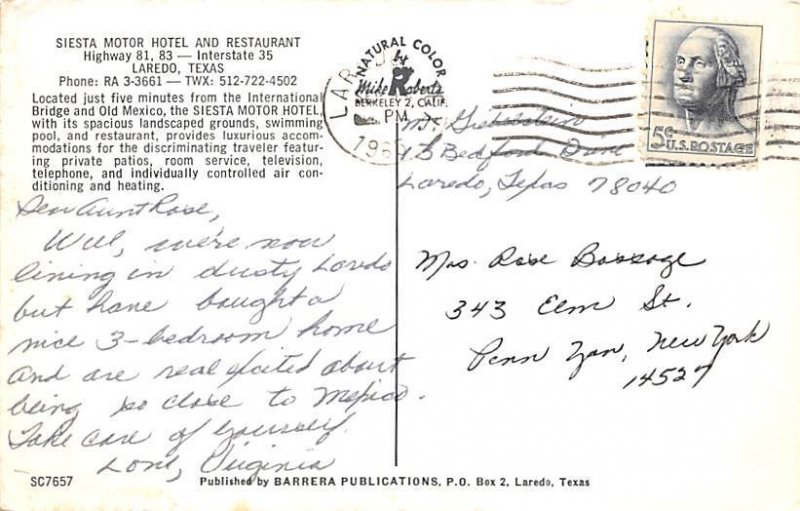 SIESTA MOTOR HOTEL AND RESTAURANT
Highway 81, 83 — Interstate 35
LAREDO, TEXAS
Phone: RA 3-3661 — TWX: 512-722-4502
Located just five minutes from the International
Bridge and Old Mexico, the SIESTA MOTOR HOTEL,
with its spacious landscaped grounds, swimming
pool, and restaurant, provides luxurious accom-
modations for the discriminating traveler featur-
ing private patios, room service, television,
telephone, and individually controlled air con-
ditioning and heating.
Dear Aunt Rose,
Well, we're now
living in dusty Laredo
but have bought a
nice 3-bedroom home
and are real excited about
being so close to Mexico.
Take care of yourself.
Love, Virginia
SC7657
NATURAL COLOR
by
Mike Roberts
BERKELEY 2, CALIF.
LAR
PM
196
5¢
U.S. POSTAGE
Bedford Drive
Laredo, Texas 78040
Mrs. Rose Bassage
343 Elm St.
Penn Yan, New York
14527
Published by BARRERA PUBLICATIONS, P.O. Box 2, Laredo, Texas